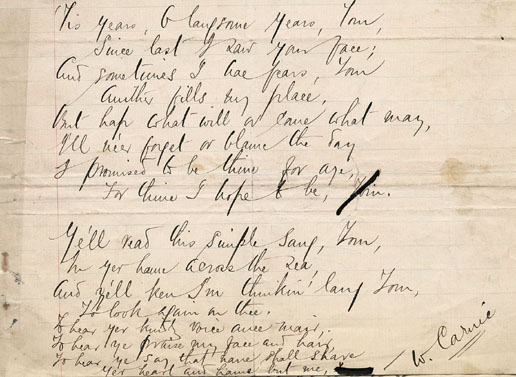 'Tis years, O langsome years, Tom,
Since last I saw your face;
And sometimes I hae fears, Tom
Anither fills my place,
But hap what will or come what may,
I'll ne'er forget or blame the day
I promised to be thine for aye,
For thine I hope to be, Tom.
Ye'll read this simple sang, Tom,
In yer hame across the sea,
And ye'll ken I'm thinkin' lang Tom,
To look again on thee.
To hear yer kindly voice ance mair,
To hear ye praise my face and hair,
To hear ye say that nane shall share
Yer heart and hame but me,
W. Carnie